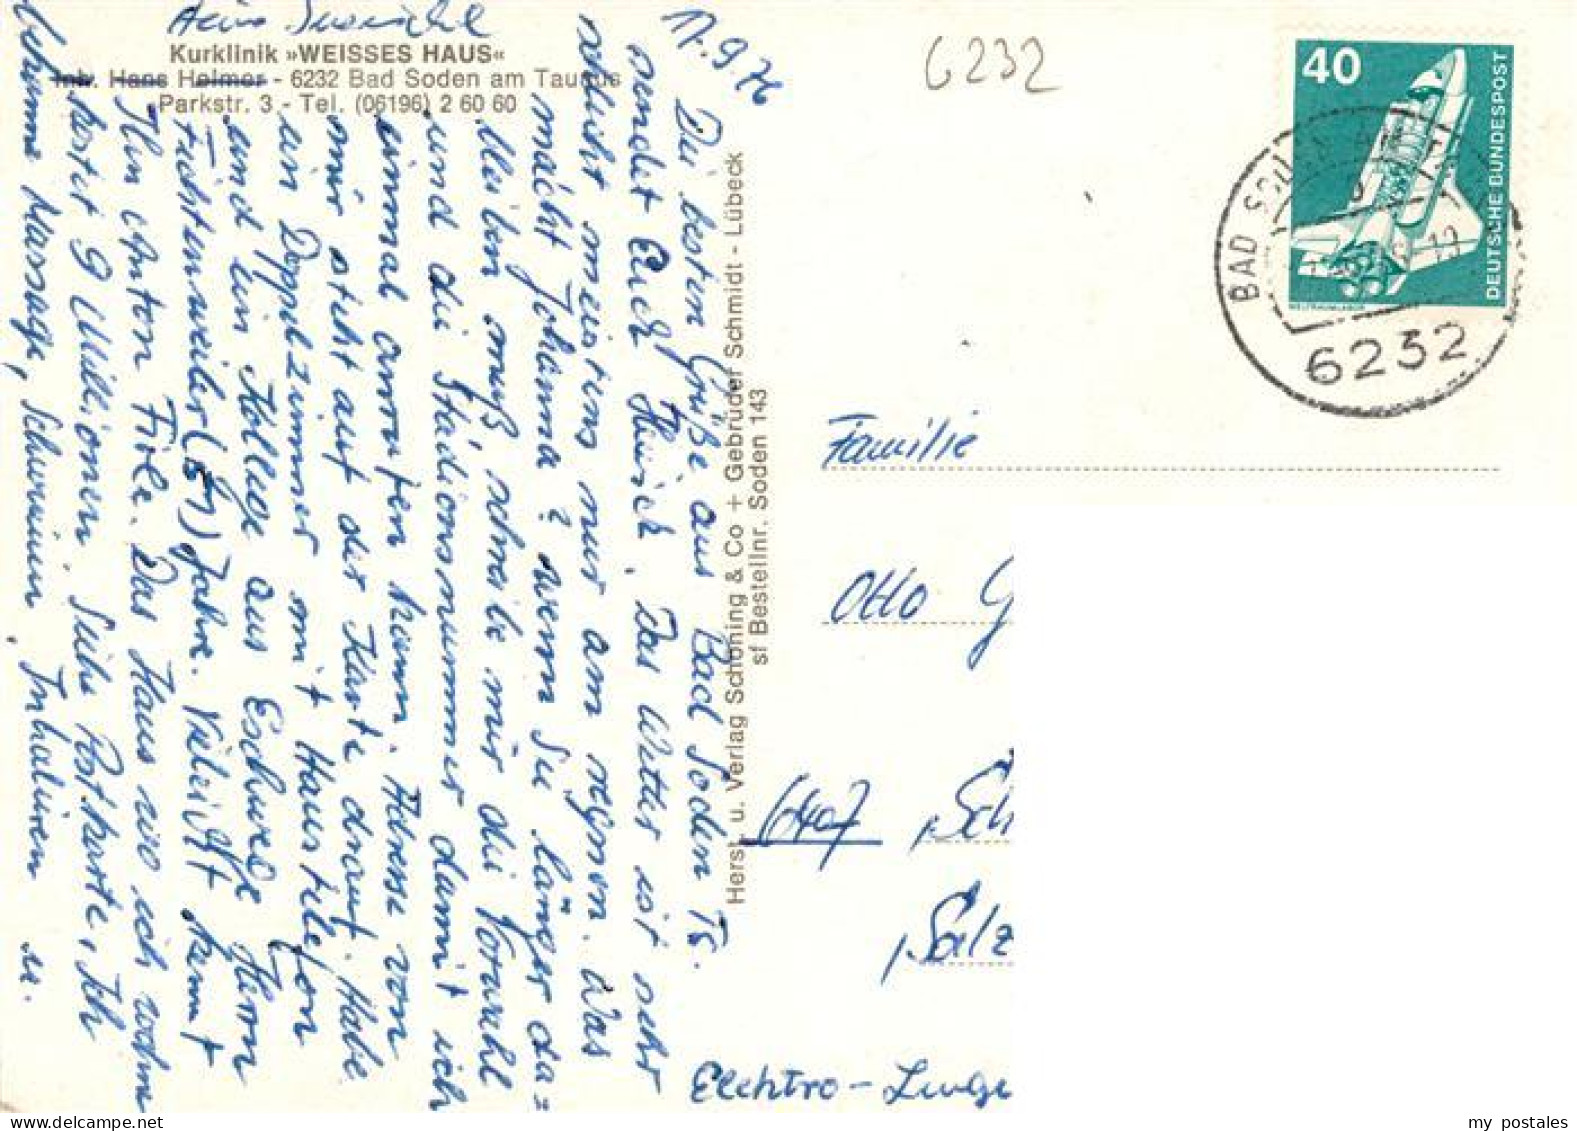 Kurklinik »WEISSES HAUS«
Inh. Hans Helmer - 6232 Bad Soden am Taunus
Parkstr. 3 - Tel. (06196) 2 60 60
17. 9. 76
Die besten Grüße aus Bad Soden Ts.
sendet Euch Heinrich. Das Wetter ist sehr
schlecht meistens nur am regnen. Was
macht Johanna? wenn Sie länger da=
bleiben muß, schreibe mir die Vorwahl
und die Stationsnummer damit ich
einmal anrufen kann. Adresse von
mir steht auf der Karte drauf. Habe
ein Doppelzimmer mit Haustelefon
und ein Kollege aus Eschwege Herrn
Jahre. Vielleicht kennt
Ihn Anton File. Das Haus wo ich wohne
kostet 9 Millionen. Siehe Postkarte, Ich
bekomme Massage, Schwimmen, Inhalieren u.
Herst. u. Verlag Schöning & Co + Gebrüder Schmidt - Lübeck
sf Bestellnr. Soden 143
6232
40
DEUTSCHE BUNDESPOST
BAD SODEN
6232
Familie
Otto G
6407 Sch
Salz
Elektro-
my postales